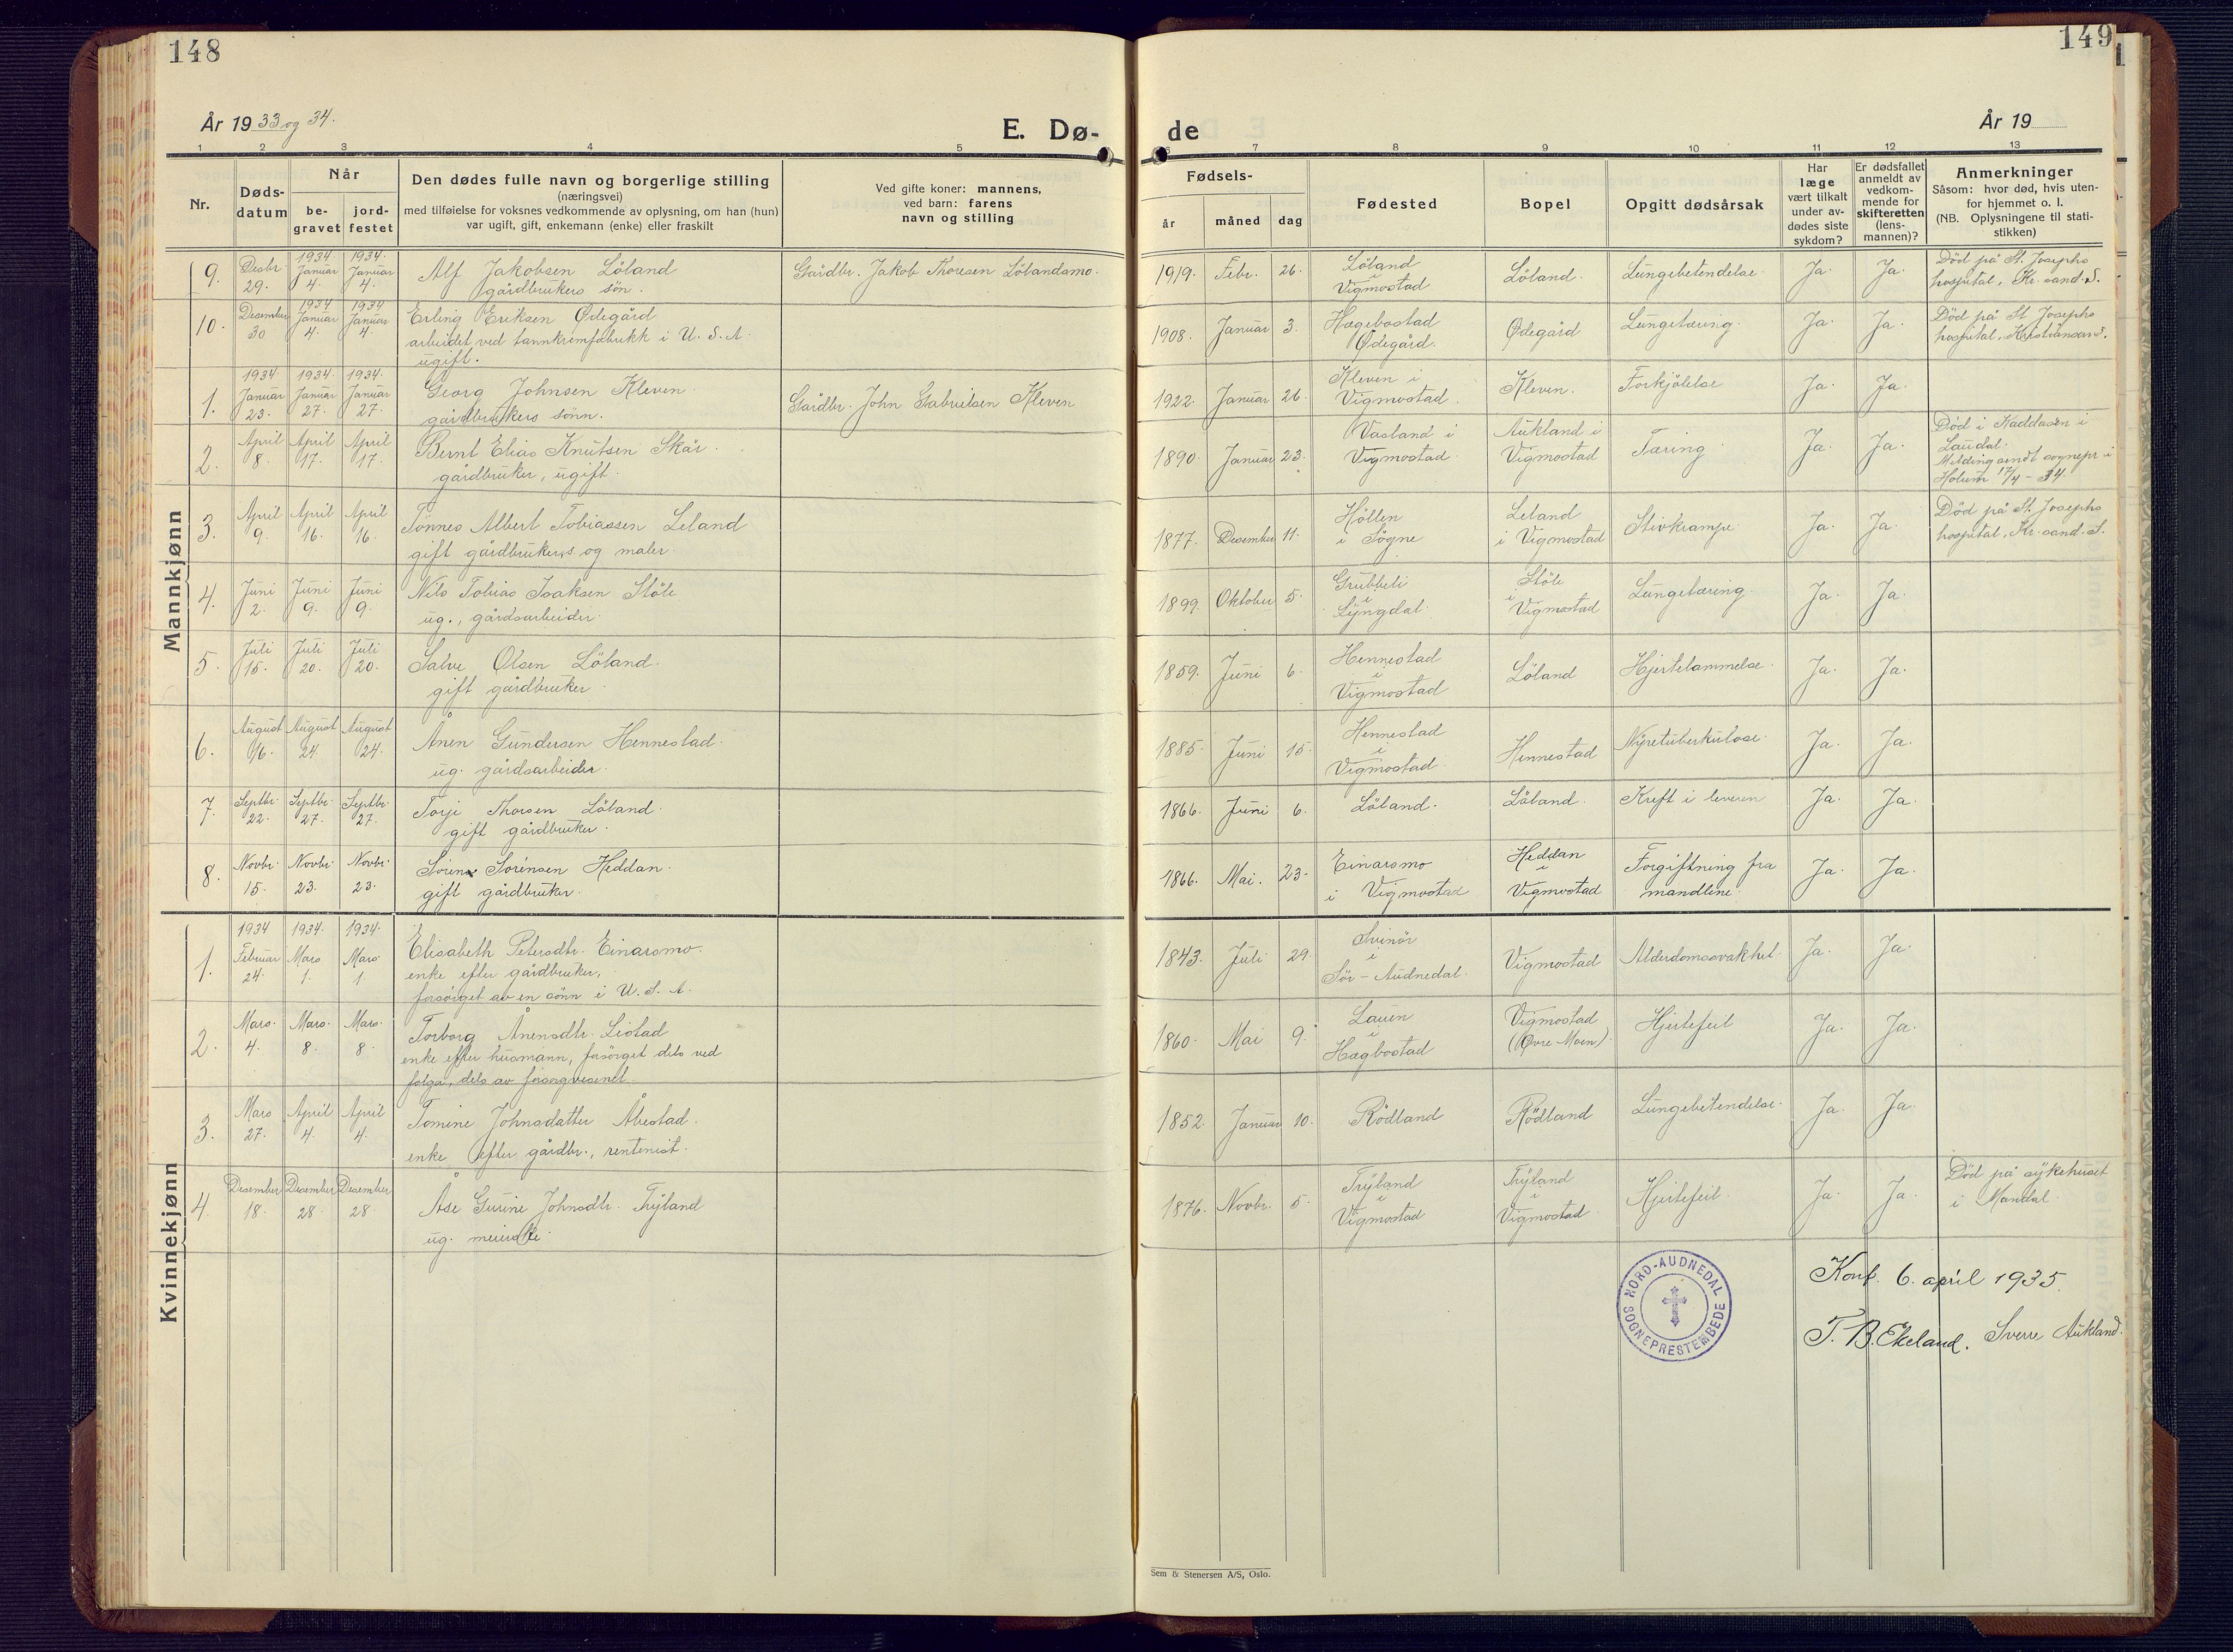 148
År 19 33 og 34.
E. Dø-
1 2 3 4 5
Nr.
Døds-
datum
Når
be-
gravet
jord-
festet
Den dødes fulle navn og borgerlige stilling
(næringsvei)
med tilføielse for voksnes vedkommende av oplysning, om han (hun)
var ugift, gift, enkemann (enke) eller fraskilt
Ved gifte koner: mannens,
ved barn: farens
navn og stilling
Mannkjønn
9. Desbr. 29. 1934 Januar 4. 1934. Januar 4.
Alf Jakobsen Löland
gårdbrukers sön.
Gårdbr. Jakob Thoresen Lölandsmo.
10. Desember 30 1934 Januar 4. 1934 Januar 4.
Erling Eriksen Ødegård
arbeidet ved tannkremfabrikk i U. S. A.
ugift.
1. 1934. Januar 23. 1934. Januar 27. 1934. Januar 27.
Georg Johnsen Kleven
gårdbrukers sönn.
Gårdbr. John Gabrielsen Kleven
2. April 8. April 17. April 17.
Bernt Elias Knutsen Skår.
gårdbruker, ugift.
3. April 9. April 16. April 16.
Tönnes Albert Tobiassen Leland
gift gårdbruker s. og maler.
4. Juni 2. Juni 9. Juni 9.
Nils Tobias Isaksen Stöle
ug., gårdsarbeider.
5. Juli 15. Juli 20. Juli 20.
Salve Olsen Löland.
gift gårdbruker.
6. August 16. August 24. August 24.
Ånen Gundersen Hennestad.
ug. gårdsarbeider.
7. Septbr. 22. Septbr. 27. Septbr. 27.
Torje Thorsen Löland.
gift gårdbruker.
8. Novbr. 15. Novbr. 23. Novbr. 23.
Sören Sörensen Heddan.
gift gårdbruker.
Kvinnekjønn
1. 1934 Februar 24. 1934. Mars 1. 1934. Mars 1.
Elisabeth Petersdtr. Einarsmo.
enke efter gårdbruker,
forsörget av en sönn i U. S. A.
2. Mars. 4. Mars. 8. Mars. 8.
Torborg Ånensdtr. Listad
enke efter husmann, forsörget dels ved
folga, dels av forsorgvesenet.
3. Mars 27. April 4. April 4.
Tomine Johnsdatter Åvestad.
enke efter gårdbr., rentenist.
4. Desember 18. Desember 28. Desember 28.
Åse Gurine Johnsdtr. Tryland
ug. meierske.
149
de
År 19
6 7 8 9 10 11 12 13
Fødsels-
år måned dag
Fødested
Bopel
Opgitt dødsårsak
Har
læge
vært tilkalt
under av-
dødes siste
sykdom?
Er dødsfallet
anmeldt av
vedkom-
mende for
skifteretten
(lens-
mannen)?
Anmerkninger
Såsom: hvor død, hvis uten-
for hjemmet o. l.
(NB. Oplysningene til stati-
stikken)
1919. Febr. 26. Löland i Vigmostad Löland. Lungebetendelse. Ja. Ja. Död på St. Josephs hospital, Kr. sand. S.
1908. Januar 3. Hægebostad Ødegård. Ødegård Lungetæring. Ja. Ja. Död på St Josephs hospital, Kristiansand.
1922. Januar 26. Kleven i Vigmostad. Kleven. Forkjölelse Ja. Ja.
1890. Januar 23. Vasland i Vigmostad. Aukland i Vigmostad Tæring Ja. Ja. Död i Haddåsen i Laudal. Melding sendt sognepr. i Holum 17/4 - 34.
1877. Desember 11. Höllen i Sögne Leland i Vigmostad Stivkrampe. Ja. Ja. Död på St. Josephs hospital, Kr. sand. S.
1899. Oktober 5. Grubbeli i Lyngdal. Stöle i Vigmostad Lungetæring. Ja. Ja.
1859. Juni 6. Hennestad i Vigmostad Löland Hjertelammelse. Ja. Ja.
1885. Juni 15. Hennestad i Vigmostad. Hennestad Nyretuberkulose. Ja. Ja.
1866. Juni 6. Löland. Löland. Kreft i leveren Ja. Ja.
1866. Mai. 23. Einarsmo i Vigmostad Heddan i Vigmostad Forgiftning fra mandlene. Ja. Ja.
1843. Juli 29. Svinör i Sör-Audnedal. Vigmostad Alderdomssvakhet. Ja. Ja.
1860. Mai 9. Lauen i Hægbostad Vigmostad (Øvre Moen). Hjertefeil Ja. Ja.
1852. Januar 10. Rödland Rödland Lungebetendelse. Ja. Ja.
1876. Novbr. 5. Tryland i Vigmostad Tryland i Vigmostad. Hjertefeil. Ja. Ja. Död på sykehuset i Mandal.
NORD-AUDNEDAL SOGNEPRESTEMBEDE
Konf. 6. april 1935.
T. B. Ekeland. Sverre Aukland.
Sem & Stenersen A/S, Oslo.